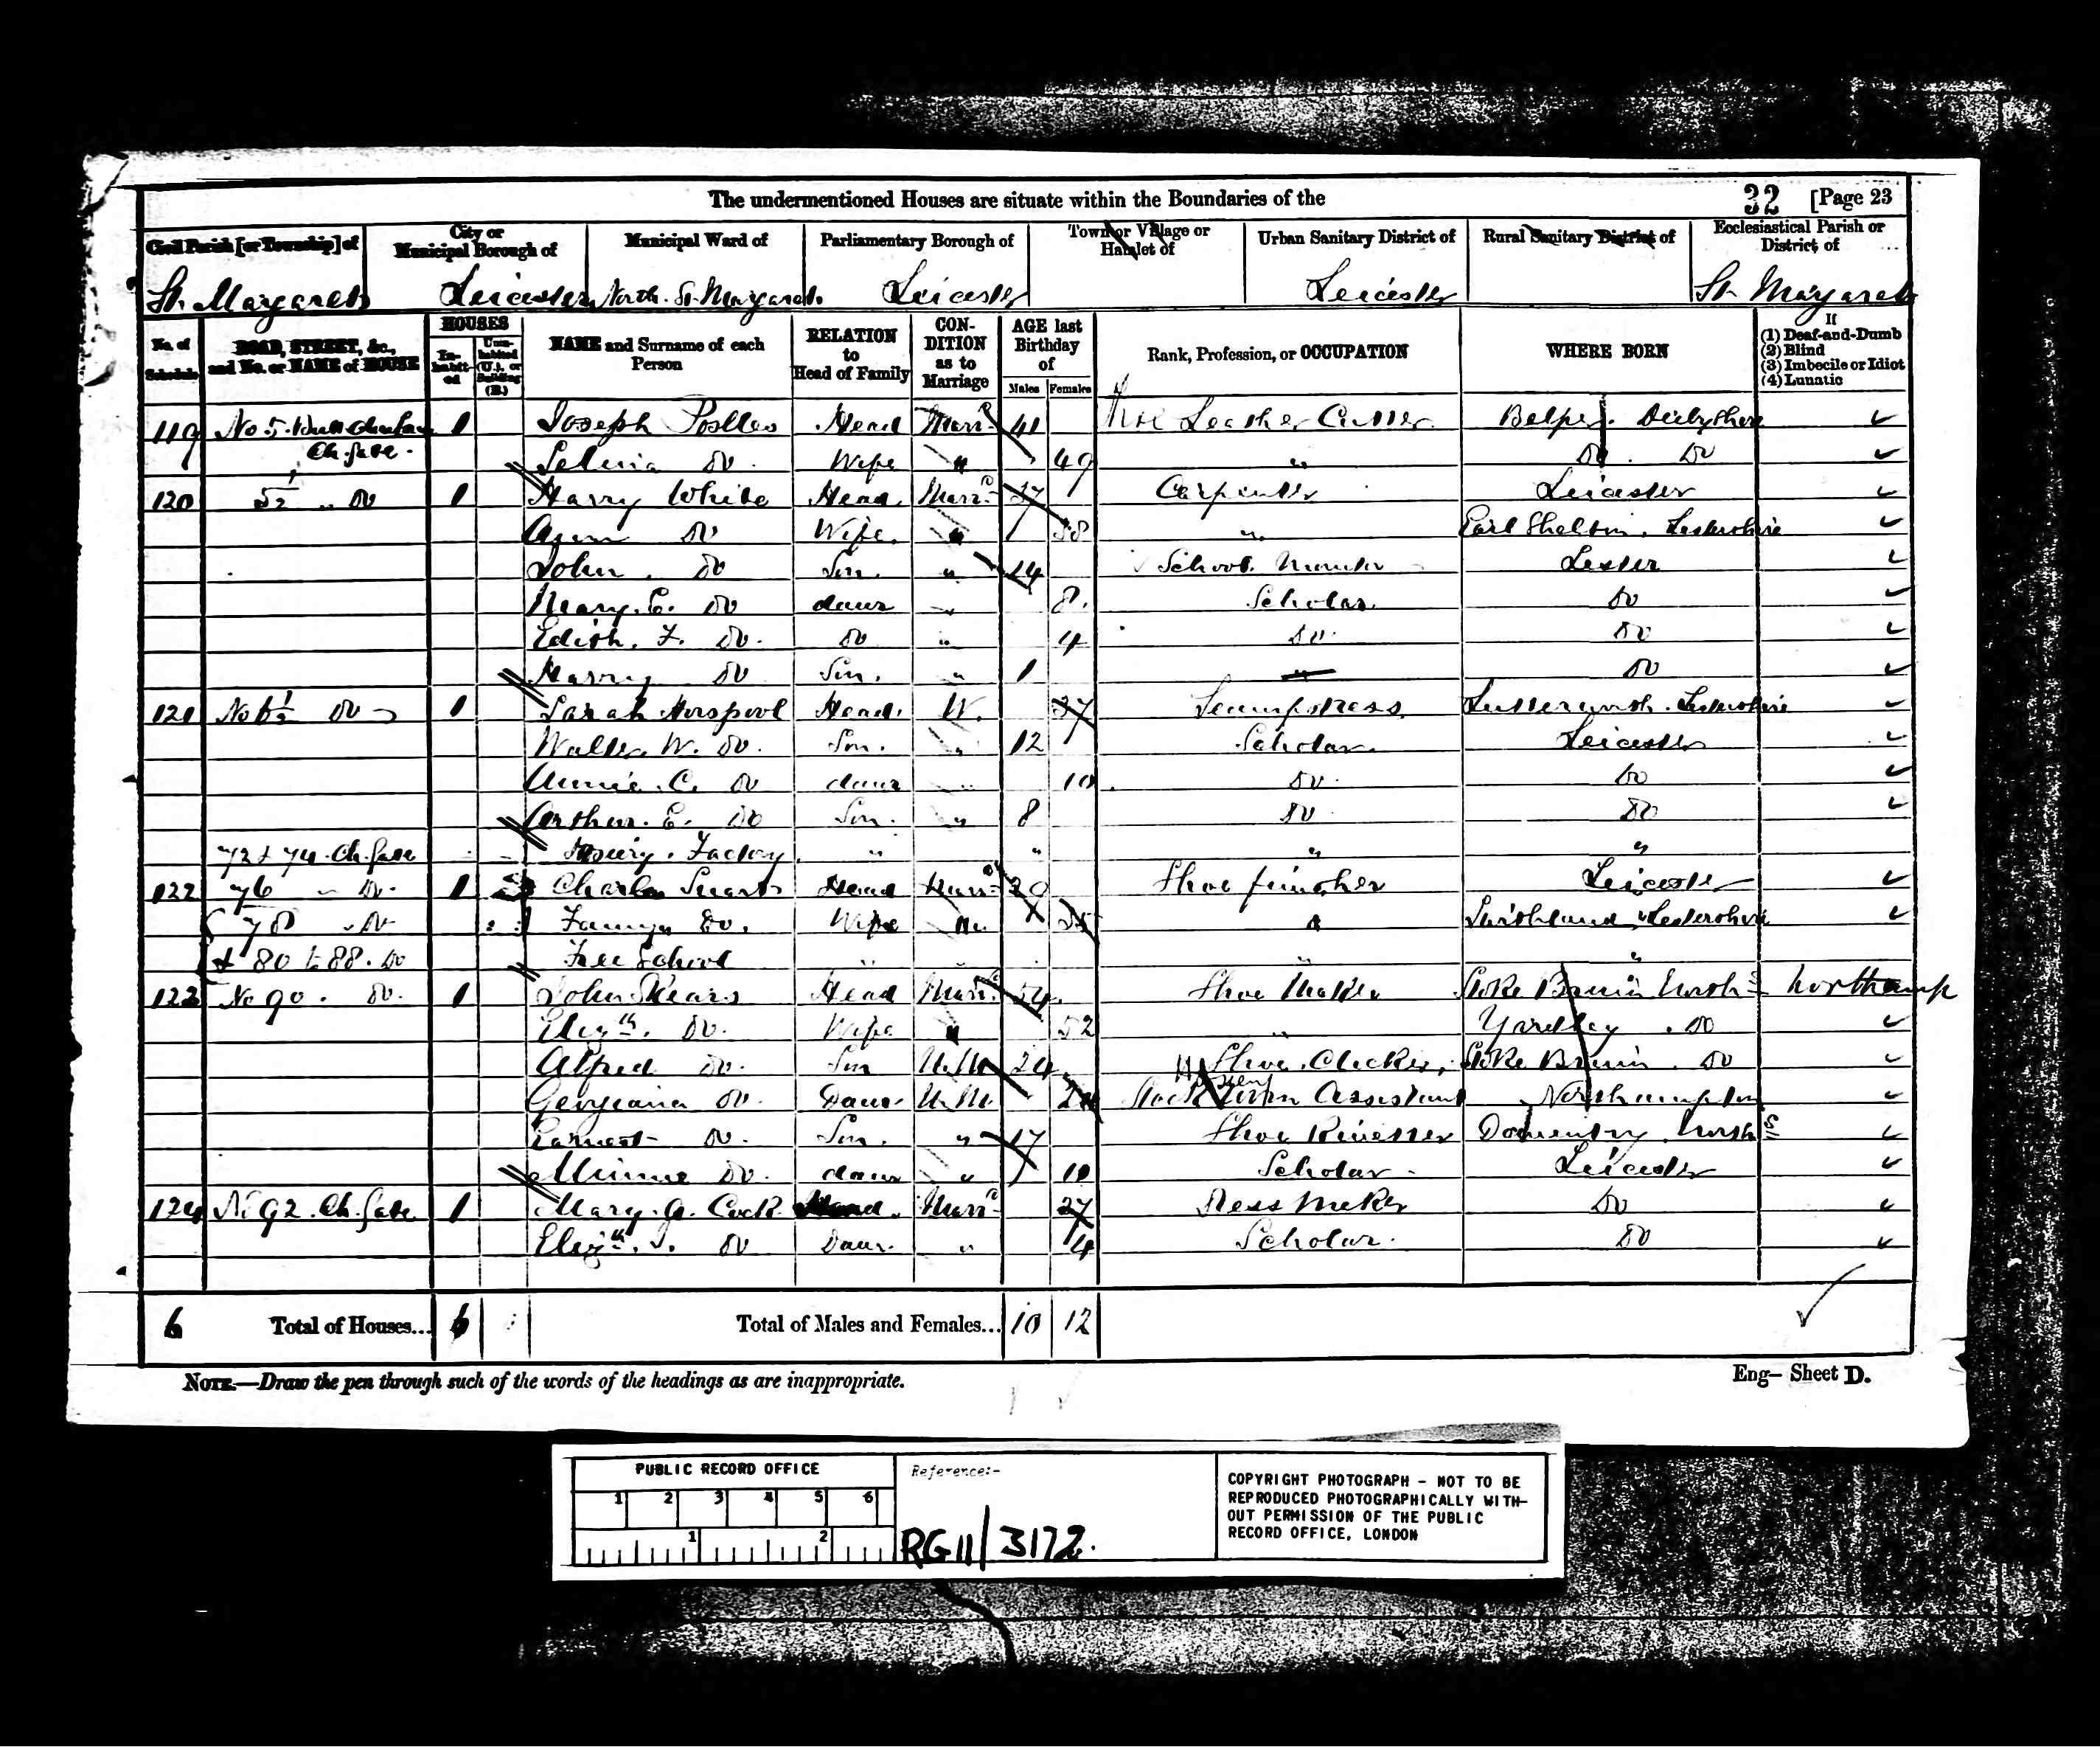 The undermentioned Houses are situate within the Boundaries of the 32 [Page 23
Civil Parish [or Township] of City or Municipal Borough of Municipal Ward of Parliamentary Borough of Town or Village or Hamlet of Urban Sanitary District of Rural Sanitary District of Ecclesiastical Parish or District of
St. Margarets Leicester North St. Margarets Leicester Leicester St Margarets
No. of Schedule ROAD, STREET, &c., and No. or NAME of HOUSE HOUSES In-habit-ed Unin-habited (U.), or Building (B.) NAME and Surname of each Person RELATION to Head of Family CON-DITION as to Marriage AGE last Birthday of Males Females Rank, Profession, or OCCUPATION WHERE BORN If (1) Deaf-and-Dumb (2) Blind (3) Imbecile or Idiot (4) Lunatic
119 No 5. 1 Joseph Head Marrd 41 Leather Cutter Belper. Derbyshire
Ch. gate. Selina Do. Wife " 49 " Do. Do
120 5½ " Do 1 Harry White Head. Marrd 37 Carpenter Leicester
Ann Do Wife. " 38 " Earl Shelton. Lestershire
John. Do Son. " 14 School Monitor Lester
Mary. E. Do daur " 8. Scholar. Do
Edith. F. Do. Do " 4 Do. Do
Harry Do Son. " 1 " Do
121 No 6½ Do 1 Sarah Horspool Head. W. 37 Seampstress Lutterworth. Lestershire
Walter. W. Do. Son. " 12 Scholar. Leicester
Annie. C. Do daur " 10. Do. Do
Arthur. E. Do Son. " 8 Do Do
72 & 74. Ch. gate Hosiery. Factory. " " " "
122 76 " Do. 1 Charles Head Marrd 29 Shoe finisher Leicester
78 " Do Fanny Do. Wife " 25 " Lestershire
& 80 to 88. Do Free School " " "
122 No 90. Do. 1 John Skears Head Marrd 54. Shoe Maker Stoke Bruin North = Northamp
Elizth. Do. Wife " 52 " Yardley. Do
Alfred Do. Son U.M 24 Shoe. Clicker, Stoke Bruin. Do
Georgiana Do. Daur. U.M Assistant Northampton
Earnest Do. Son. " 17 Shoe Rivetter Daventry. North
Minnie Do. daur " 10 Scholar. Leicester
124 No 92. Ch. gate 1 Mary. A. Cock Head. Marrd 27 Dress Maker Do
Elizth. Do Daur. " 4 Scholar. Do
6 Total of Houses... 6 Total of Males and Females... 10 12
NOTE.—Draw the pen through such of the words of the headings as are inappropriate.
Eng— Sheet D.
PUBLIC RECORD OFFICE
1 2 3 4 5 6
1 2
Reference:-
RG 11/3172.
COPYRIGHT PHOTOGRAPH - NOT TO BE
REPRODUCED PHOTOGRAPHICALLY WITH-
OUT PERMISSION OF THE PUBLIC
RECORD OFFICE, LONDON